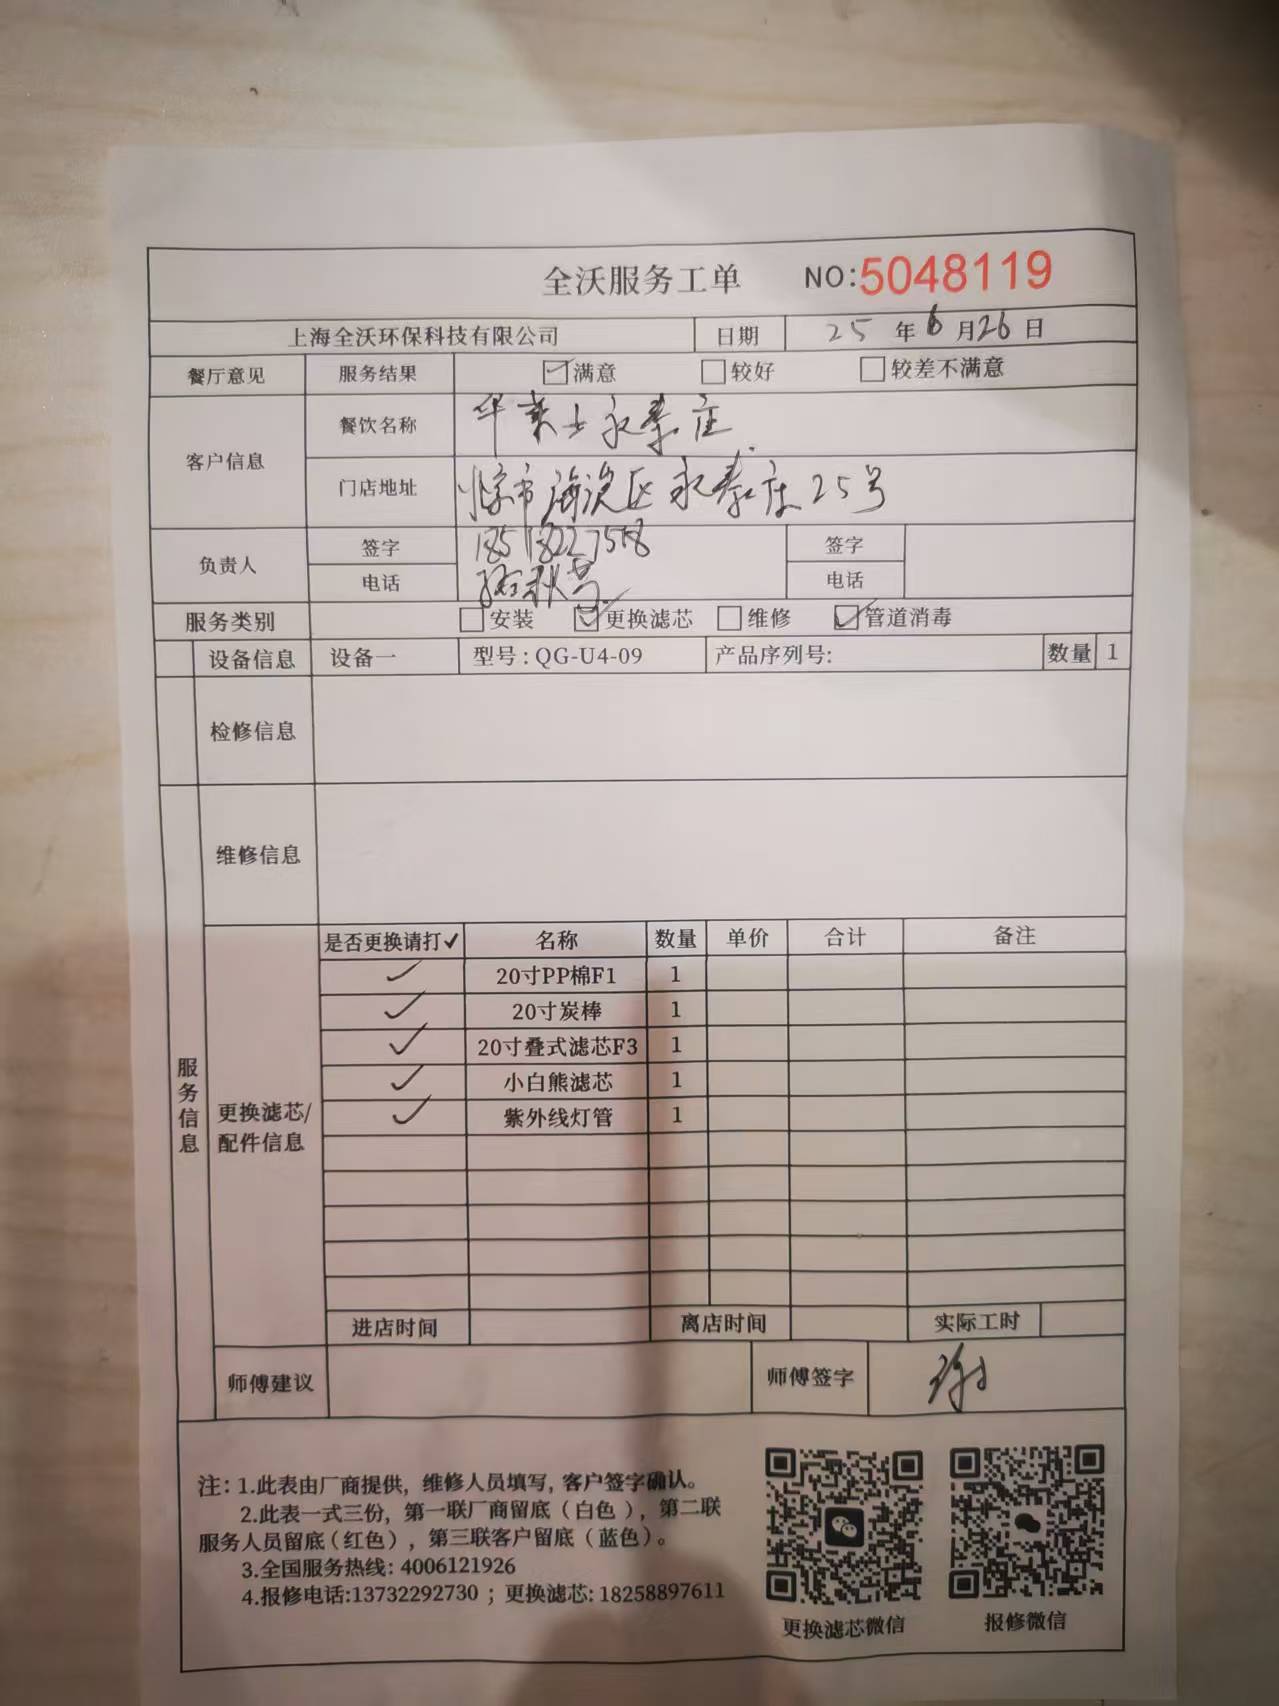 全沃服务工单 NO:5048119
上海全沃环保科技有限公司 日期 25 年 6 月 26 日
餐厅意见 服务结果 ☑满意 □较好 □较差不满意
客户信息 餐饮名称 华莱士永泰庄
门店地址 北京市海淀区永泰庄25号
负责人 签字 签字
电话 电话
服务类别 □安装 ☑更换滤芯 □维修 ☑管道消毒
设备信息 设备一 型号：QG-U4-09 产品序列号: 数量 1
检修信息
维修信息
服务信息
更换滤芯/配件信息
是否更换请打✓ 名称 数量 单价 合计 备注
✓ 20寸PP棉F1 1
✓ 20寸炭棒 1
✓ 20寸叠式滤芯F3 1
✓ 小白熊滤芯 1
✓ 紫外线灯管 1
进店时间 离店时间 实际工时
师傅建议 师傅签字 谢
注：1.此表由厂商提供，维修人员填写，客户签字确认。
2.此表一式三份，第一联厂商留底（白色），第二联
服务人员留底（红色），第三联客户留底（蓝色）。
3.全国服务热线：4006121926
4.报修电话:13732292730；更换滤芯: 18258897611
更换滤芯微信 报修微信